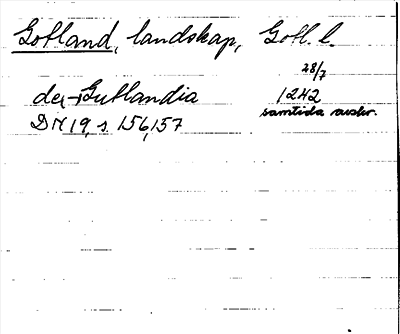 Gotland, landskap, Gotl. l.
28/7
de Gutlandia 1242
DN 19, s. 156, 157 samtida avskr.